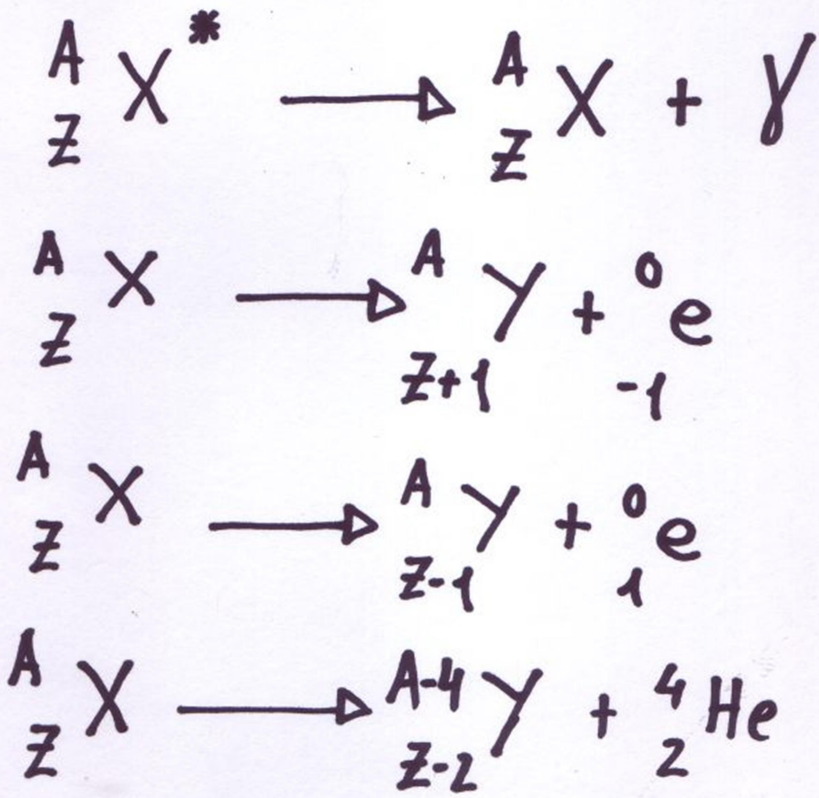 A Z X* → A Z X + γ
A Z X → A Z+1 Y + 0 -1 e
A Z X → A Z-1 Y + 0 1 e
A Z X → A-4 Z-2 Y + 4 2 He